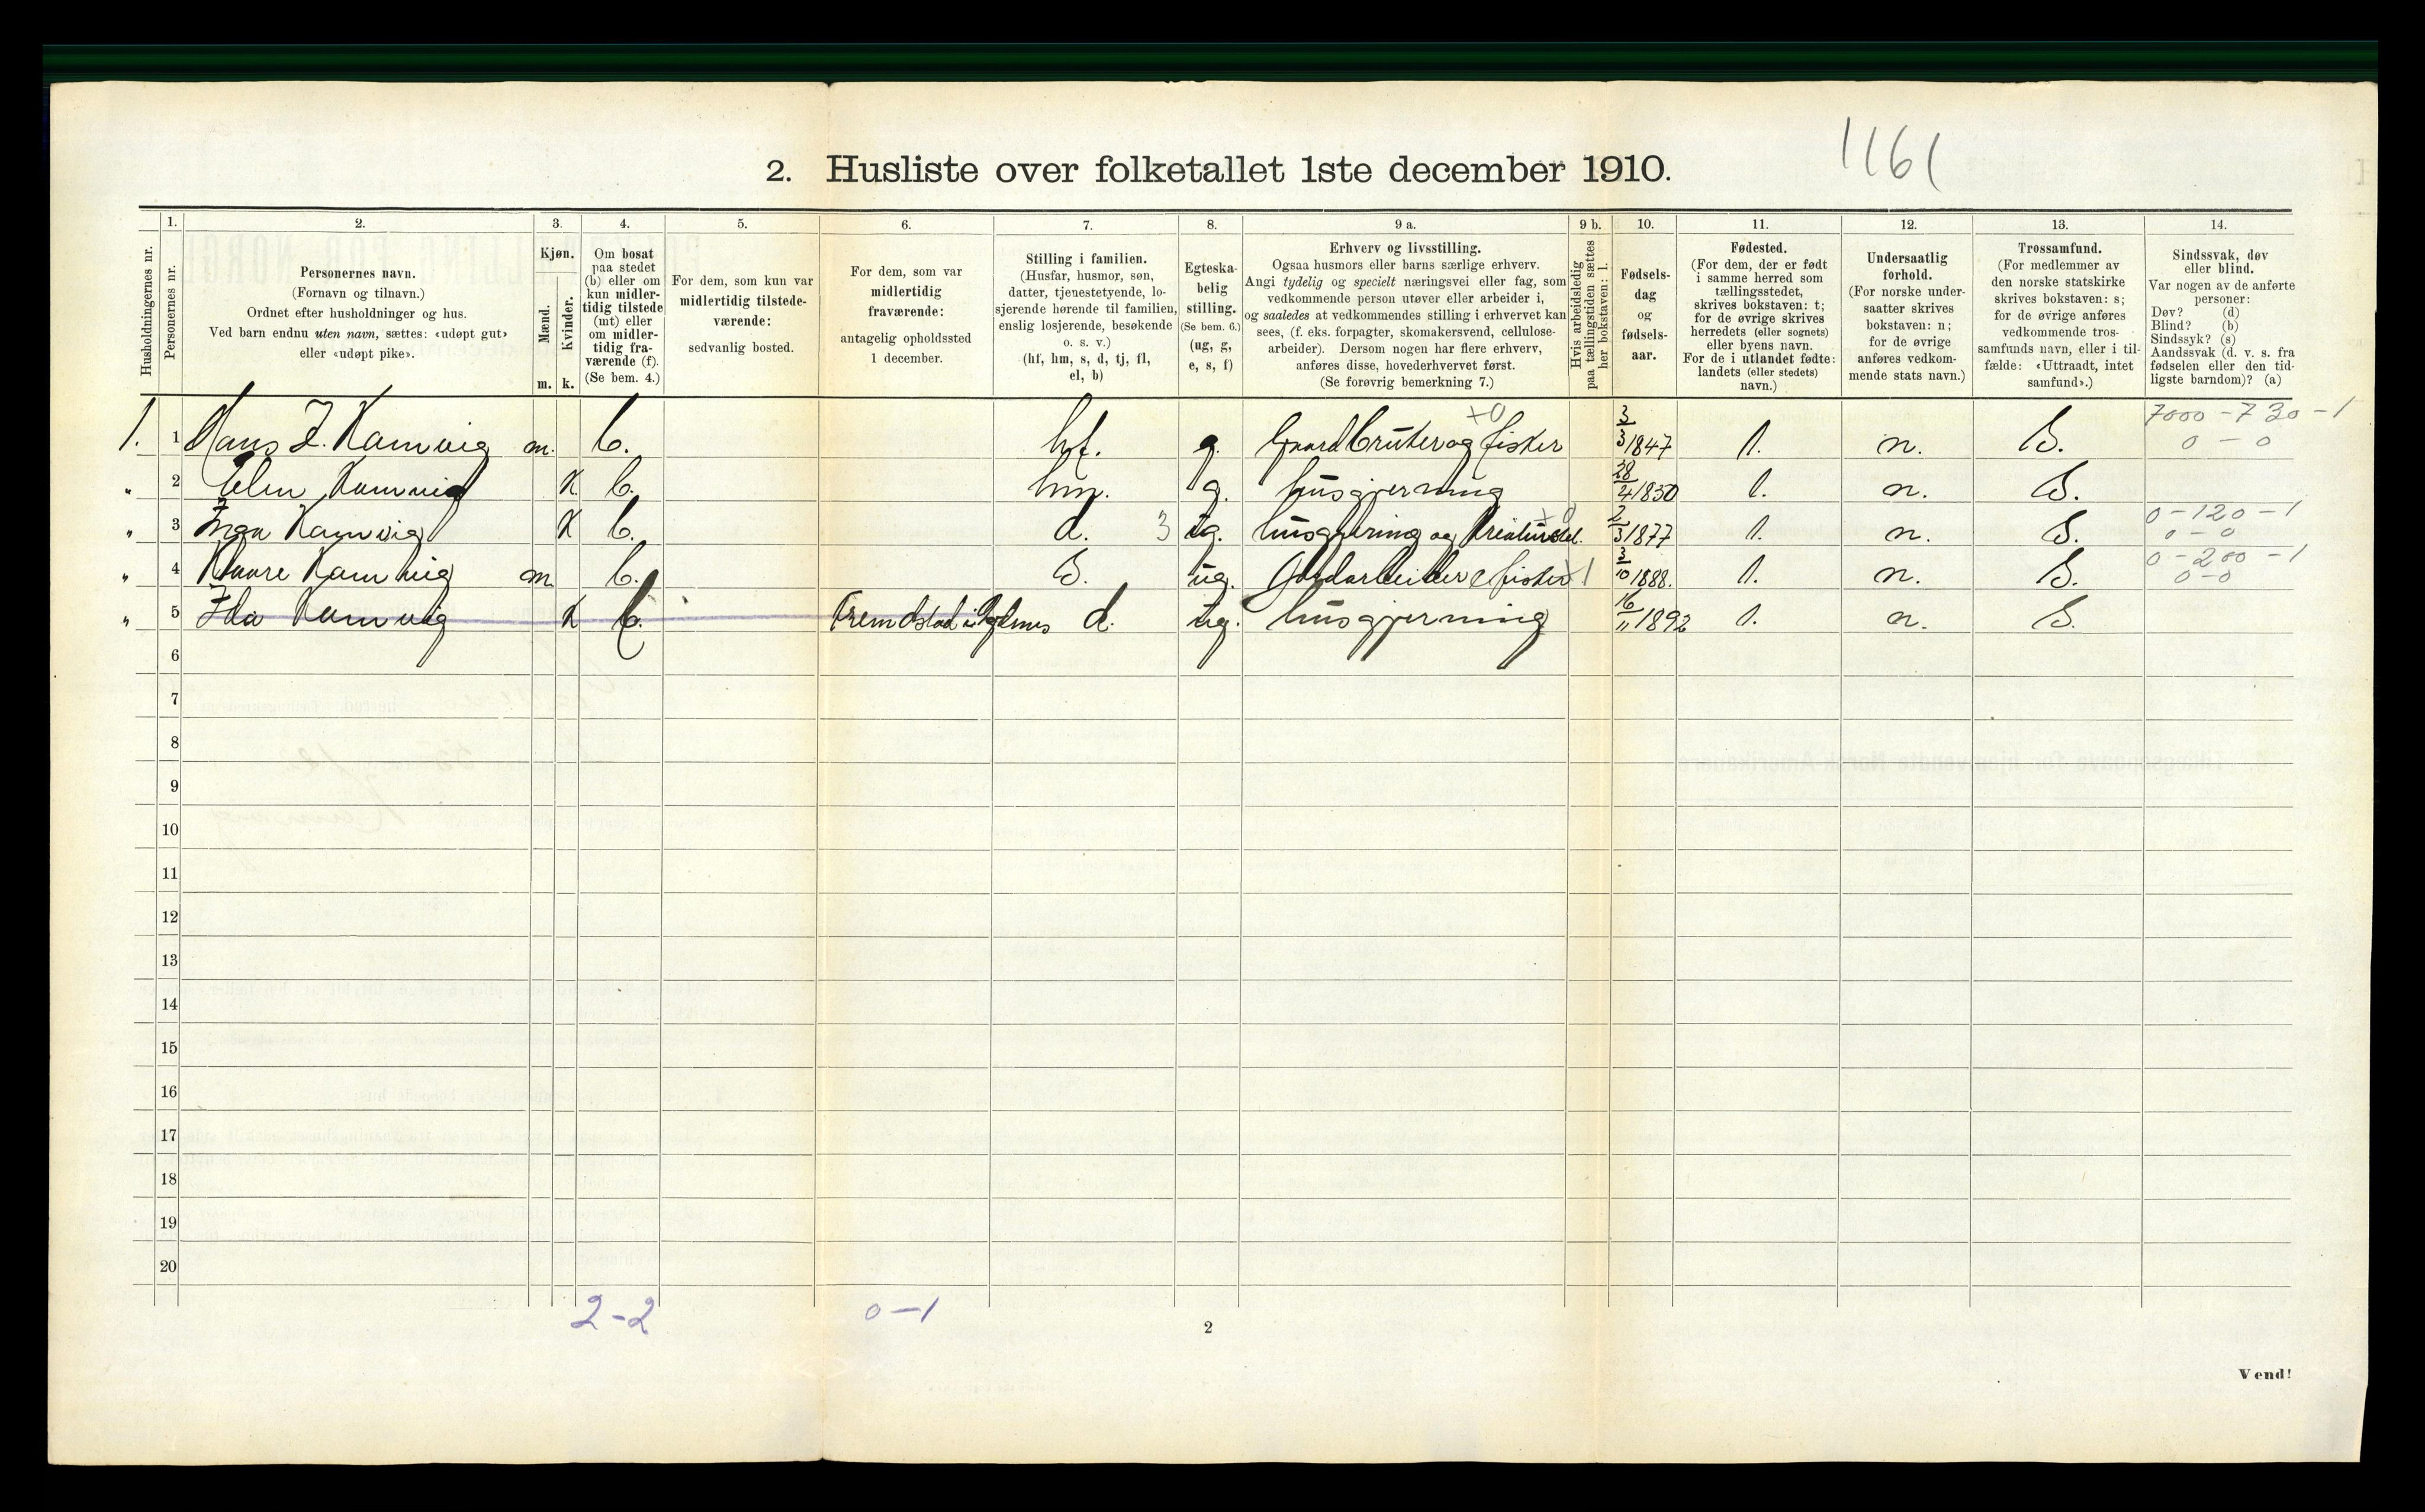 1161
2. Husliste over folketallet 1ste december 1910.
Husholdningernes nr.
1. Personernes nr.
2. Personernes navn.
(Fornavn og tilnavn.)
Ordnet efter husholdninger og hus.
Ved barn endnu uten navn, sættes: «udøpt gut»
eller «udøpt pike».
3. Kjøn.
Mænd. m.
Kvinder. k.
4. Om bosat
paa stedet
(b) eller om
kun midler-
tidig tilstede
(mt) eller
om midler-
tidig fra-
værende (f).
(Se bem. 4.)
5. For dem, som kun var
midlertidig tilstede-
værende:
sedvanlig bosted.
6. For dem, som var
midlertidig
fraværende:
antagelig opholdssted
1 december.
7. Stilling i familien.
(Husfar, husmor, søn,
datter, tjenestetyende, lo-
sjerende hørende til familien,
enslig losjerende, besøkende
o. s. v.)
(hf, hm, s, d, tj, fl,
el, b)
8. Egteska-
belig
stilling.
(Se bem. 6.)
(ug, g,
e, s, f)
9 a. Erhverv og livsstilling.
Ogsaa husmors eller barns særlige erhverv.
Angi tydelig og specielt næringsvei eller fag, som
vedkommende person utøver eller arbeider i,
og saaledes at vedkommendes stilling i erhvervet kan
sees, (f. eks. forpagter, skomakersvend, cellulose-
arbeider). Dersom nogen har flere erhverv,
anføres disse, hovederhvervet først.
(Se forøvrig bemerkning 7.)
9 b. Hvis arbeidsledig
paa tællingstiden sættes
her bokstaven: l.
10. Fødsels-
dag
og
fødsels-
aar.
11. Fødested.
(For dem, der er født
i samme herred som
tællingsstedet,
skrives bokstaven: t;
for de øvrige skrives
herredets (eller sognets)
eller byens navn.
For de i utlandet fødte:
landets (eller stedets)
navn.)
12. Undersaatlig
forhold.
(For norske under-
saatter skrives
bokstaven: n;
for de øvrige
anføres vedkom-
mende stats navn.)
13. Trossamfund.
(For medlemmer av
den norske statskirke
skrives bokstaven: s;
for de øvrige anføres
vedkommende tros-
samfunds navn, eller i til-
fælde: «Uttraadt, intet
samfund».)
14. Sindssvak, døv
eller blind.
Var nogen av de anførte
personer:
Døv? (d)
Blind? (b)
Sindssyk? (s)
Aandssvak (d. v. s. fra
fødselen eller den tid-
ligste barndom)? (a)
1. 1 Hans J. Kamvig m. b. hf. g. Gaardbruker og fisker +0 3/3 1847 t. n. S. 7000 - 730 - 1
0 - 0
" 2 Elen Kamvig K b. hm. g. husgjerning 28/4 1850 t. n. S.
" 3 Inga Kamvig K b. d. 3 ug. husgjerning og Kreaturstel. 2/3 1877 t. n. S. 0 - 120 - 1
0 - 0
" 4 Kaare Kamvig m b. S. ug. Jordarbeider & fisker 3/10 1888. t. n. S. 0 - 200 - 1
0-0
" 5 Ida Kamvig K d. ug. husgjerning 16/11 1892 t. n. S.
6
7
8
9
10
11
12
13
14
15
16
17
18
19
20
2-2 0-1
2
Vend!